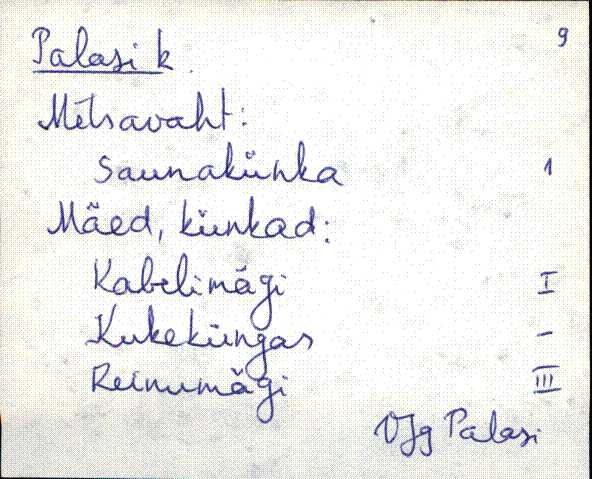 Palasi k. 9
Metsavaht:
Saunakünka 1
Mäed, künkad:
Kabelimägi I
Kukeküngas –
Reinumägi III
VJg Palasi